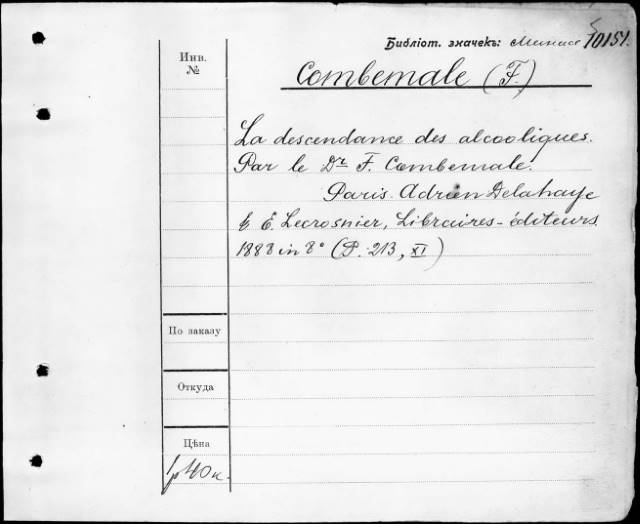 Библіот. значекъ: 10151.
Инв.
№
Combemale (F.)
La descendance des alcooliques.
Par le Dr F. Combemale.
Paris. Adrien Delahaye
& É. Lecrosnier, Libraires-éditeurs.
1888 in 8° (P. 213, XI)
По заказу
Откуда
Цѣна
1 р 40 к.